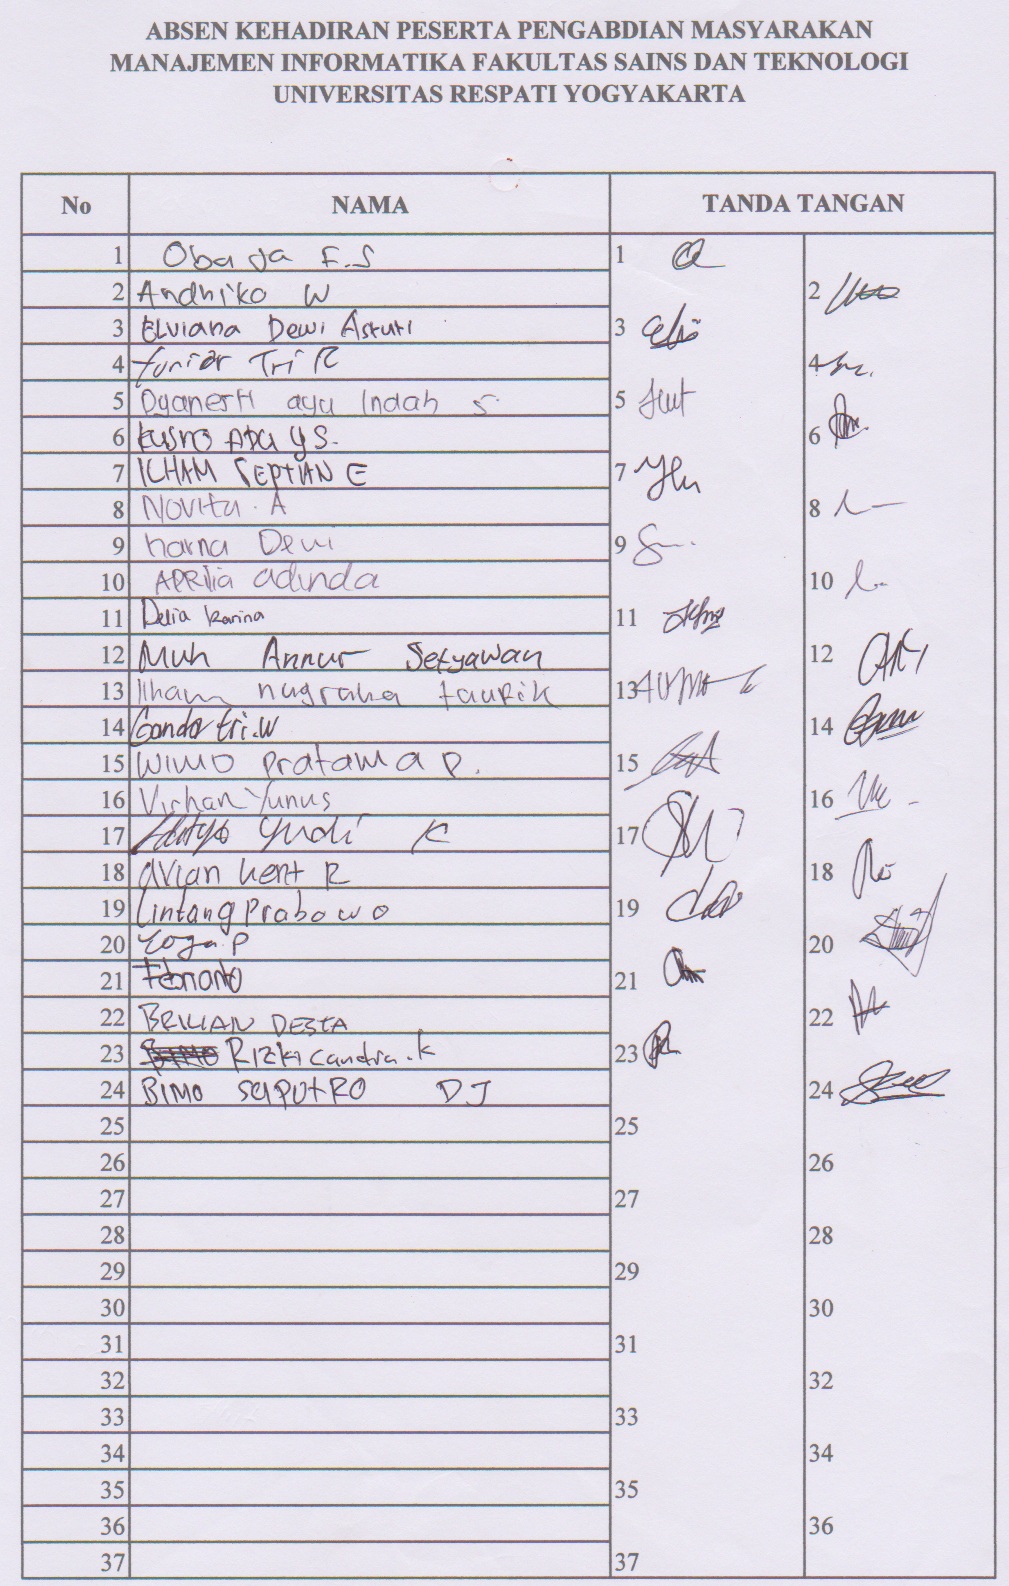 ABSEN KEHADIRAN PESERTA PENGABDIAN MASYARAKAN
MANAJEMEN INFORMATIKA FAKULTAS SAINS DAN TEKNOLOGI
UNIVERSITAS RESPATI YOGYAKARTA
No NAMA TANDA TANGAN
1 Obaja F.S 1
2 Andhiko W 2
3 Elviana Dewi Astuti 3
4 Junior Tri R 4
5 Dyanesti ayu Indah S 5
6 Kusno Adu Y S. 6
7 ILHAM SEPTIAN E 7
8 Novita. A 8
9 harna Dewi 9
10 APRilia adinda 10
11 Delia Karina 11
12 Muh Annur Setyawan 12
13 Ilham nugraha taufik 13
14 Gandar tri.W 14
15 WIMO Pratama P. 15
16 Virhan Yunus 16
17 Yudi K 17
18 alvian hent R 18
19 Lintang Prabowo 19
20 Yoga.P 20
21 Febrianto 21
22 BRILIAN DESTA 22
23 RIZKI candra.k 23
24 BIMO SAPUTRO DJ 24
25 25
26 26
27 27
28 28
29 29
30 30
31 31
32 32
33 33
34 34
35 35
36 36
37 37